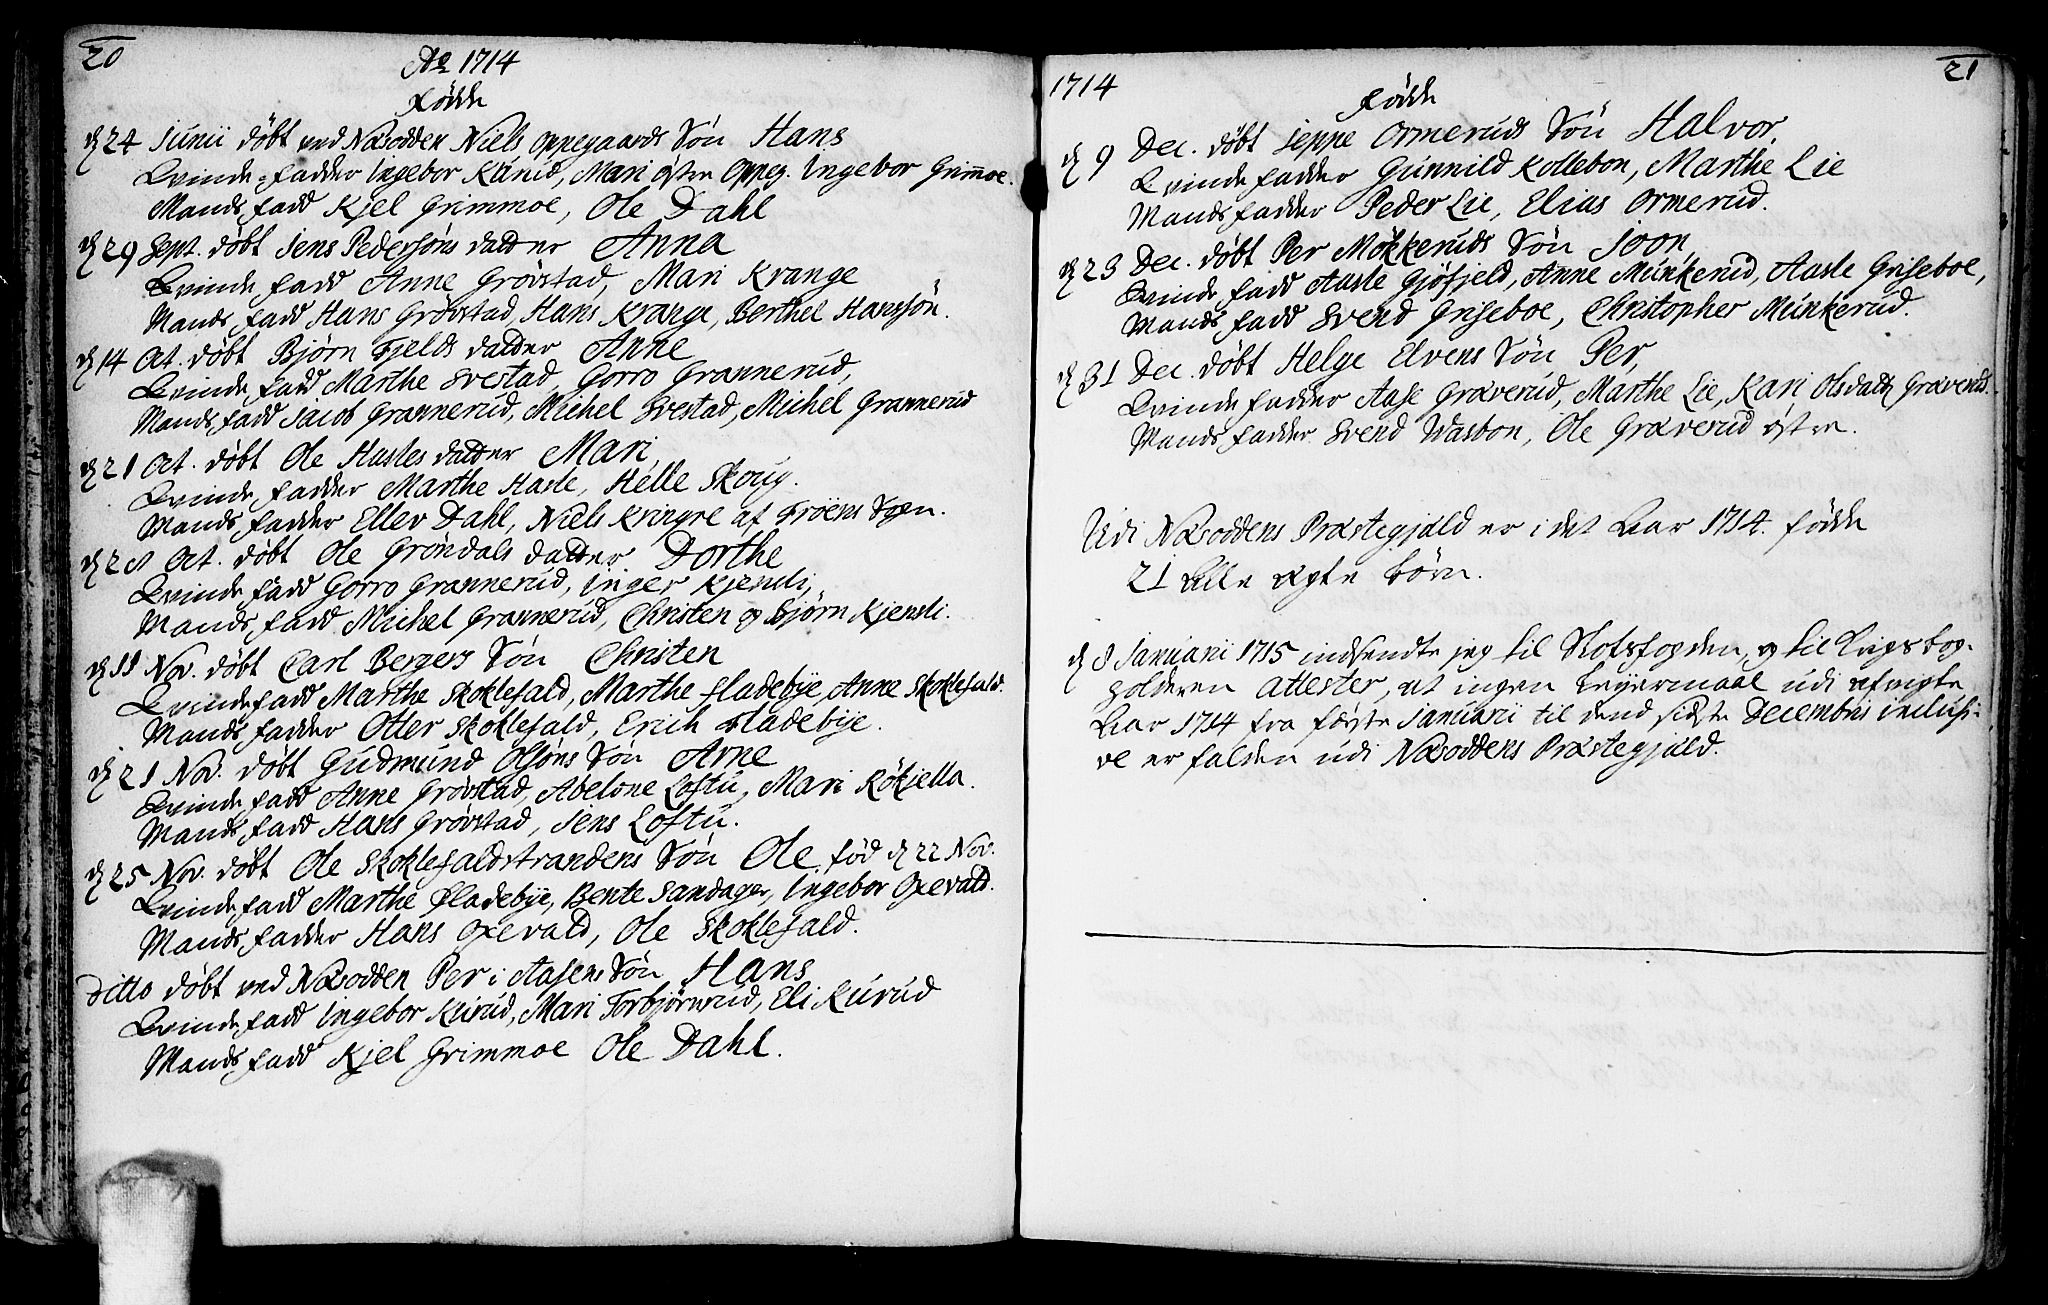 20
Ao 1714
Fødde
d 24 Junii døbt ved Næsodden Niels Oppegaards Søn Hans
Qvinde-Fadder Ingebor Kurud, Mari østre Oppeg. Ingebor Grimmoe.
Mands Fadd Kjel Grimmoe, Ole Dahl
d 29 Sept. døbt Jens Pedersøns datter Anna
Qvinde Fadd Anne Grøvstad, Mari Krange
Mands Fadd Hans Grøvstad, Hans Krange, Berthel Hanssøn.
d 14 Oct. døbt Bjørn Fjelds datter Anne
Qvinde Fadd Marthe Svestad, Gorro Grannerud,
Mands Fadd Jacob Grannerud, Michel Svestad, Michel Grannerud
d 21 Oct. døbt Ole Hasles datter Mari
Qvinde Fadder Marthe Hasle, Helle Skoug.
Mands Fadder Ellev Dahl, Niels Kringre af Frøens Sogn.
d 21 Oct. døbt Ole Grøndals datter Dorthe
Qvinde Fadd Gorro Grannerud, Inger Kjensli,
Mands Fadd Michel Grannerud, Christen og Bjørn Kjensli.
d 11 Nov. døbt Carl Bergers Søn Christen
Qvinde Fadd Marthe Skoklefald, Marthe Fladebye, Anne Skoklefald.
Mands Fadder Otter Skoklefald, Erich Fladebye.
d 21 Nov. døbt Gudmund Olsøns Søn Arne
Qvinde Fadd Anne Grøvstad, Abelone Loftu, Mari Røkjella.
Mands Fadd Hans Grøvstad, Jens Loftu.
d 25 Nov. døbt Ole Skoklefaldstrandens Søn Ole, fød d 22 Nov.
Qvinde Fadd Marthe Fladebye, Bente Sandager, Ingebor Oxevald.
Mands Fadder Hans Oxevald, Ole Skoklefald.
Ditto døbt ved Næsodden Per i Aasens Søn Hans
Qvinde Fadd Ingebor Kurud, Mari Torbjørnrud, Eli Kurud
Mands Fadd Kjel Grimmoe Ole Dahl.
1714
21
Fødde
d 9 Dec. døbt Jeppe Ormeruds Søn Halvor,
Qvinde Fadder Gunnild Kollebon, Marthe Lie
Mands Fadder Peder Lie, Elias Ormerud.
d 23 Dec. døbt Per Mökkeruds Søn Joon,
Qvinde Fadd Aasle Gjøfjeld, Anne Munkerud, Aasle Griseboe,
Mands Fadd Svend Griseboe, Christopher Munkerud.
d 31 Dec. døbt Helge Elvens Søn Per,
Qvinde Fadder Aase Græverud, Marthe Lie, Kari Olsdatt Græverud.
Mands Fadder Svend Wasbon, Ole Græverud østre.
Udi Næsoddens Præstegjæld er i det Aar 1714. fødde
21 Alle ægte Børn.
d 8 Januarii 1715 indsendte jeg til Slotsfogden, og til Krigsbog-
holderen Attester, at ingen Leyermaal udi afvigte
Aar 1714 fra første Januarii til dend sidste Decembris inclusi-
ve er falden udi Næsoddens Præstegjæld.